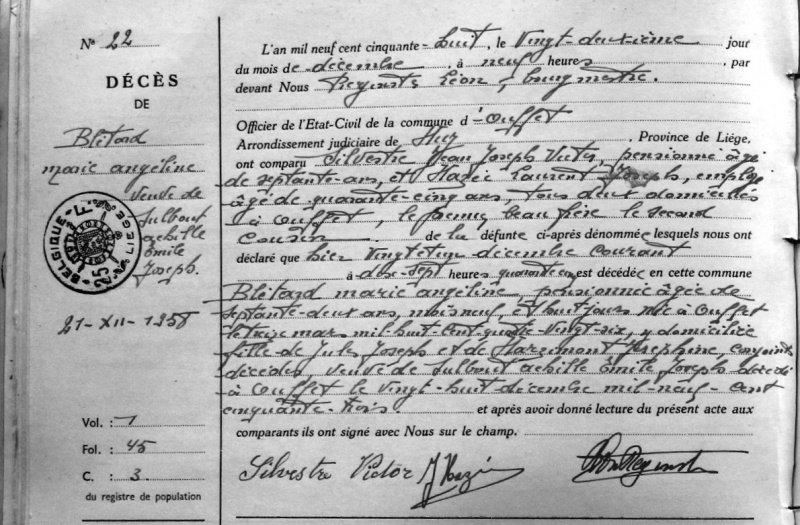 N° 22
DÉCÈS
DE
Blétard
marie angéline
veuve de
Julbout
achille
Émile
Joseph.
BELGIQUE
25 F
LIEGE
21-XII-1958
Vol. : 1
Fol. : 45
C. : 3
du registre de population
L'an mil neuf cent cinquante-huit, le vingt-deuxième jour
du mois de décembre, à neuf heures, par
devant Nous Léon, bourgmestre.
Officier de l'Etat-Civil de la commune d'Ouffet
Arrondissement judiciaire de Huy, Province de Liége,
ont comparu Silvestre Jean Joseph Victor, pensionné âgé
de septante-ans, et Hazée Laurent Joseph, employé
âgé de quarante-cinq ans tous deux domiciliés
à Ouffet, le premier beau-frère le second
cousin de la défunte ci-après dénommée lesquels nous ont
déclaré que hier vingt et un décembre courant
à dix-sept heures quarante est décédé en cette commune
Blétard marie angéline, pensionnée âgée de
septante-deux ans, mois neuf, et huit jours née à Ouffet
le treize mars mil huit cent quatre-vingt-six, y domiciliée
fille de Jules Joseph et de Joséphine, conjoints
décédés, veuve de Julbout achille Émile Joseph décédé
à Ouffet le vingt-huit décembre mil-neuf-cent
cinquante-trois et après avoir donné lecture du présent acte aux
comparants ils ont signé avec Nous sur le champ.
Silvestre Victor J Hazée